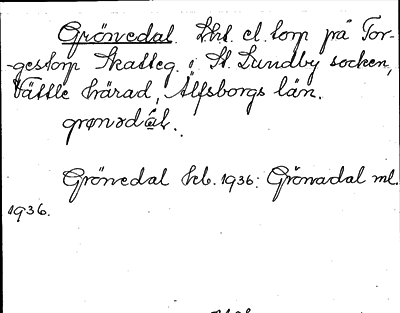 Grönedal. Lht el. torp på Tor-
-gestorp Skatteg. i St. Lundby socken,
Vättle härad, Älfsborgs län.
grønədál.
Grönedal kb. 1936: Grönadal ml.
1936.